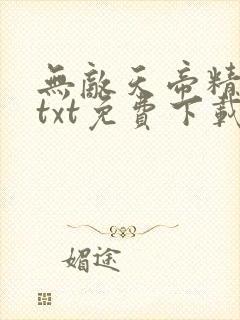 無敵天帝精
txt免費下載
媚途